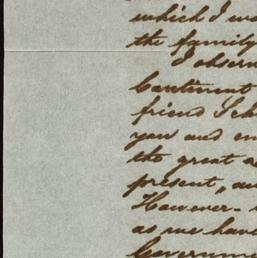 which I wo
the family
I observ
Continent
friend Sch
you and en
the great a
present, an
However - 
as we have
Governme